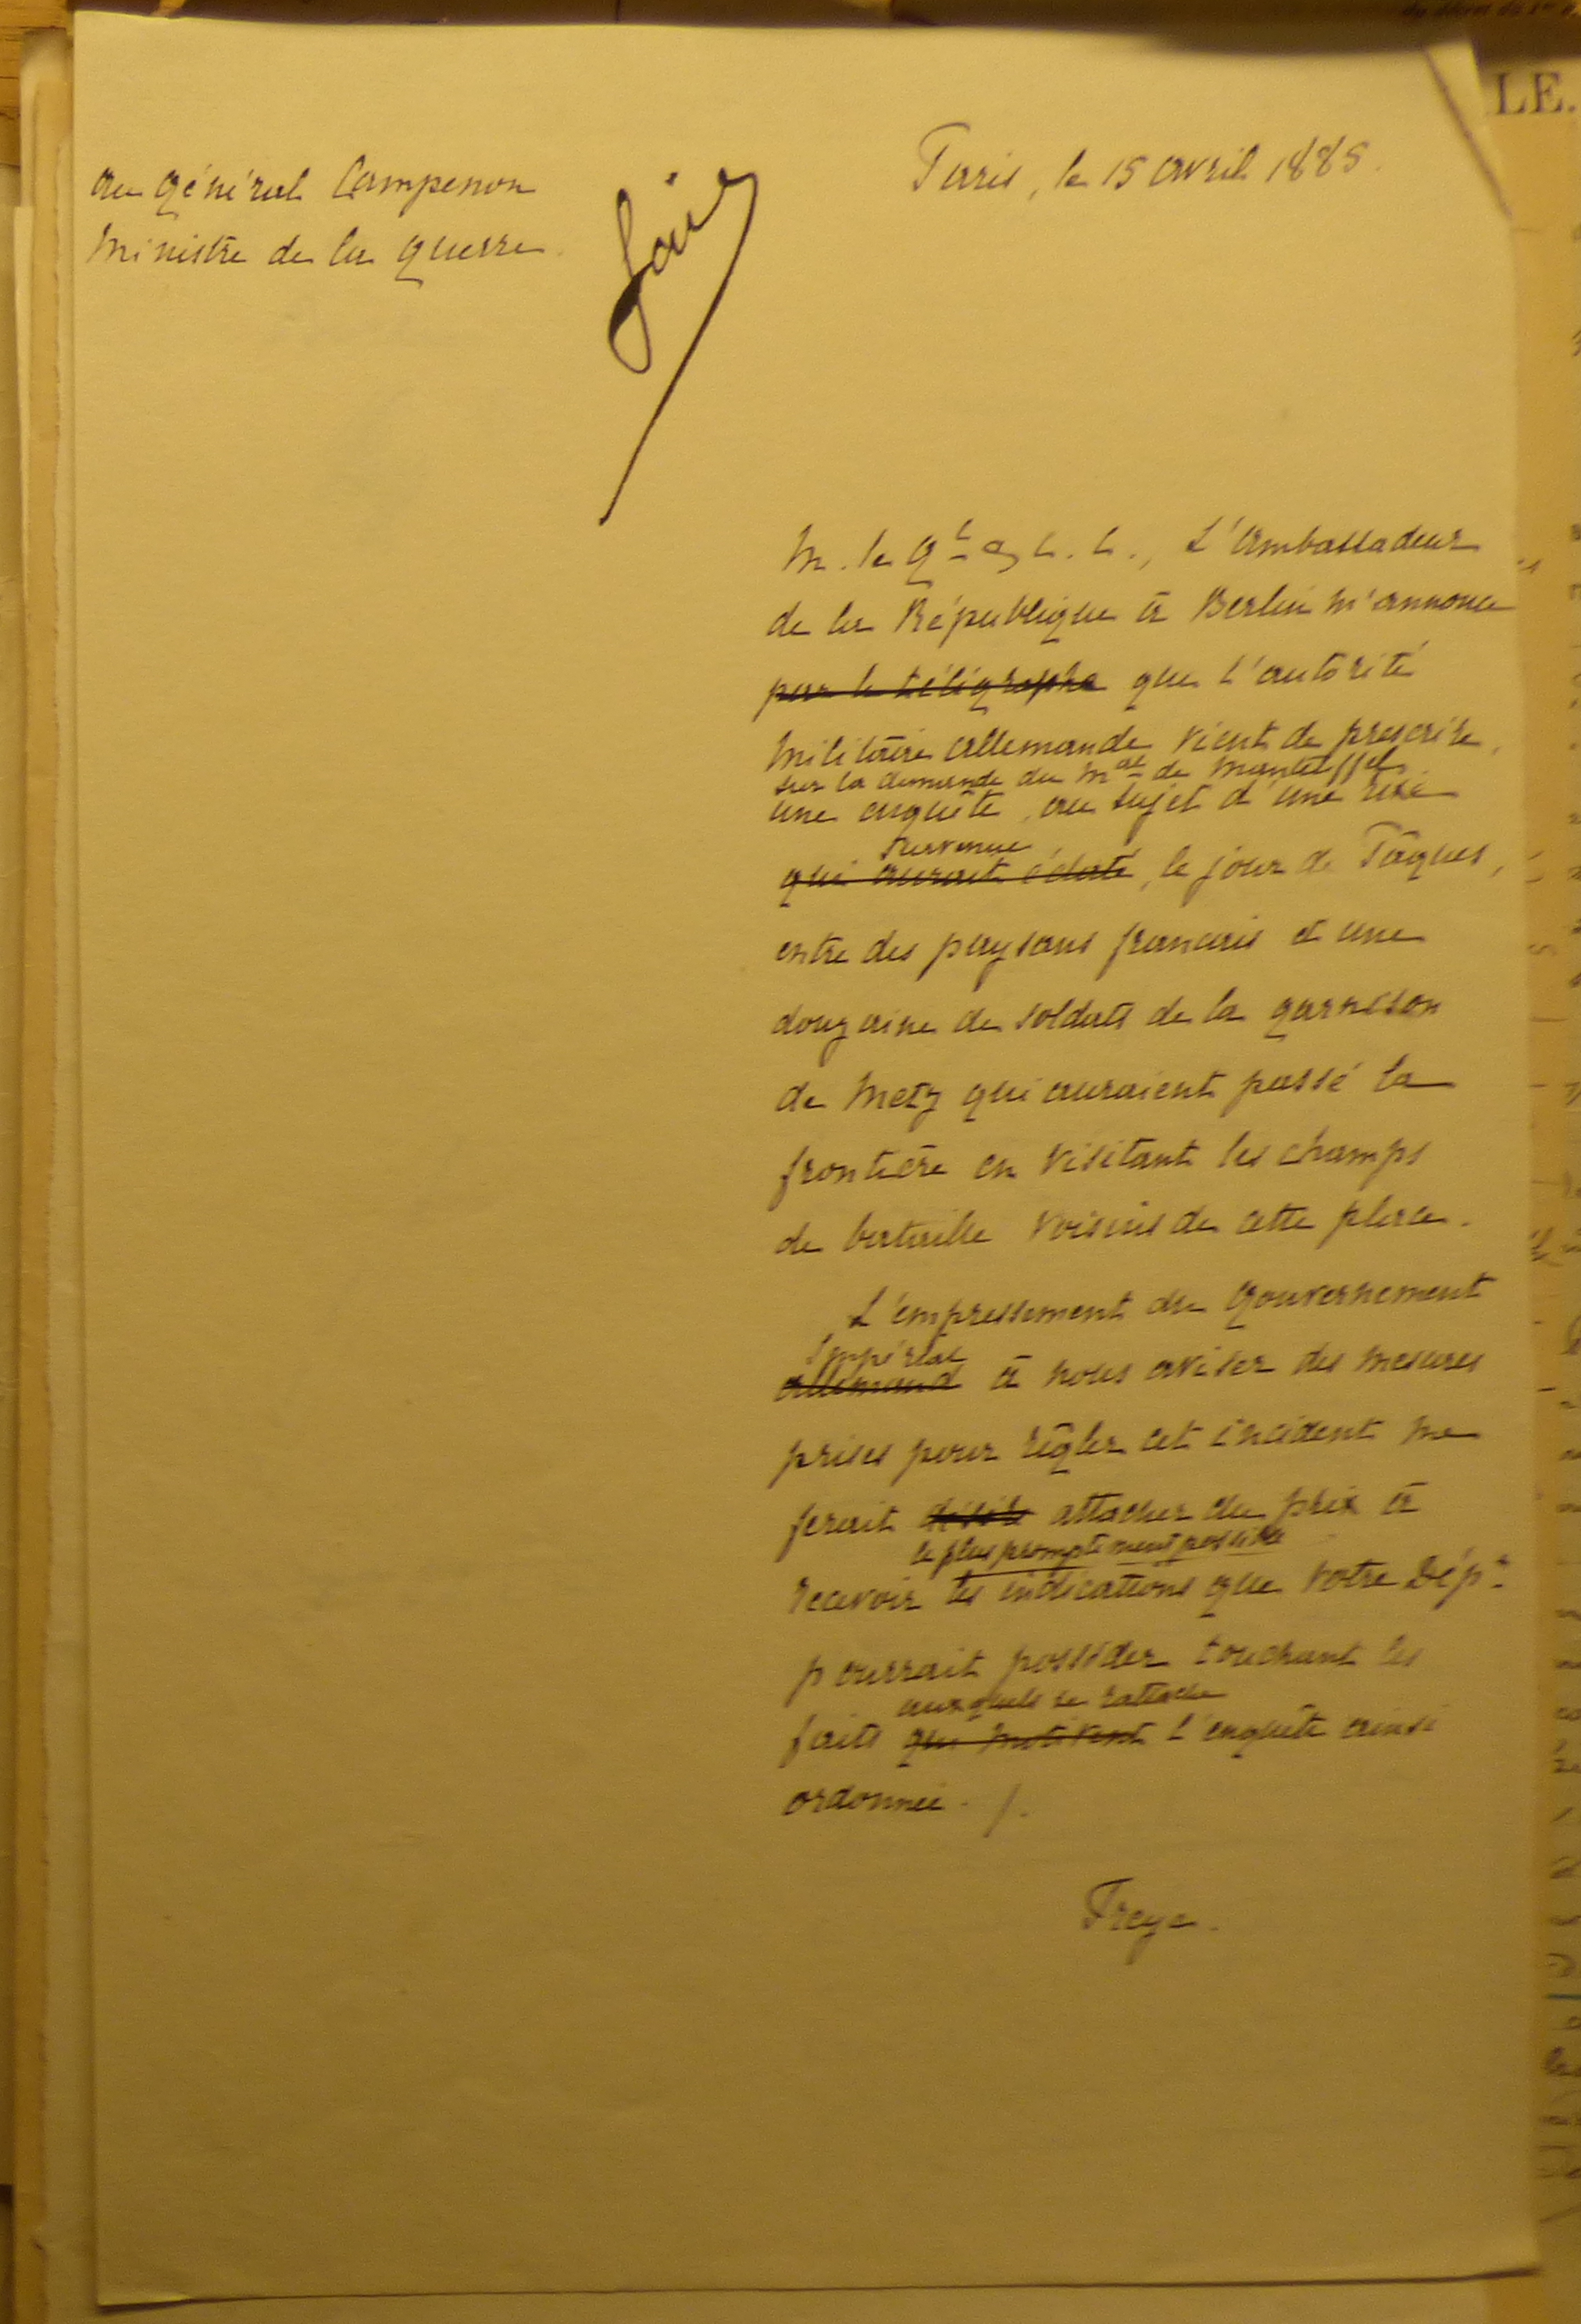 Paris, le 15 avril 1885.
au Général Campenon
Ministre de la Guerre.
faire
M. le Gl & C. C., L'ambassadeur
de la République à Berlin m'annonce
par le télégraphe que l'autorité
militaire allemande vient de prescrire,
sur la demande du Mal de Manteuffel,
une enquête, au sujet d'une rixe
survenue
qui aurait éclaté, le jour de Pâques,
entre des paysans francais et une
douzaine de soldats de la garnison
de Metz qui auraient passé la
frontière en visitant les champs
de bataille voisins de cette place.
L'empressement du Gouvernement
Impérial
allemand à nous aviser des mesures
prises pour règler cet incident me
ferait désire attacher du prix à
le plus promptement possible
recevoir les indications que votre Dépt
pourrait posséder touchant les
auxquels se rattache
faits qui motivent l'enquête ainsi
ordonnée. /.
Freyc.
LE.